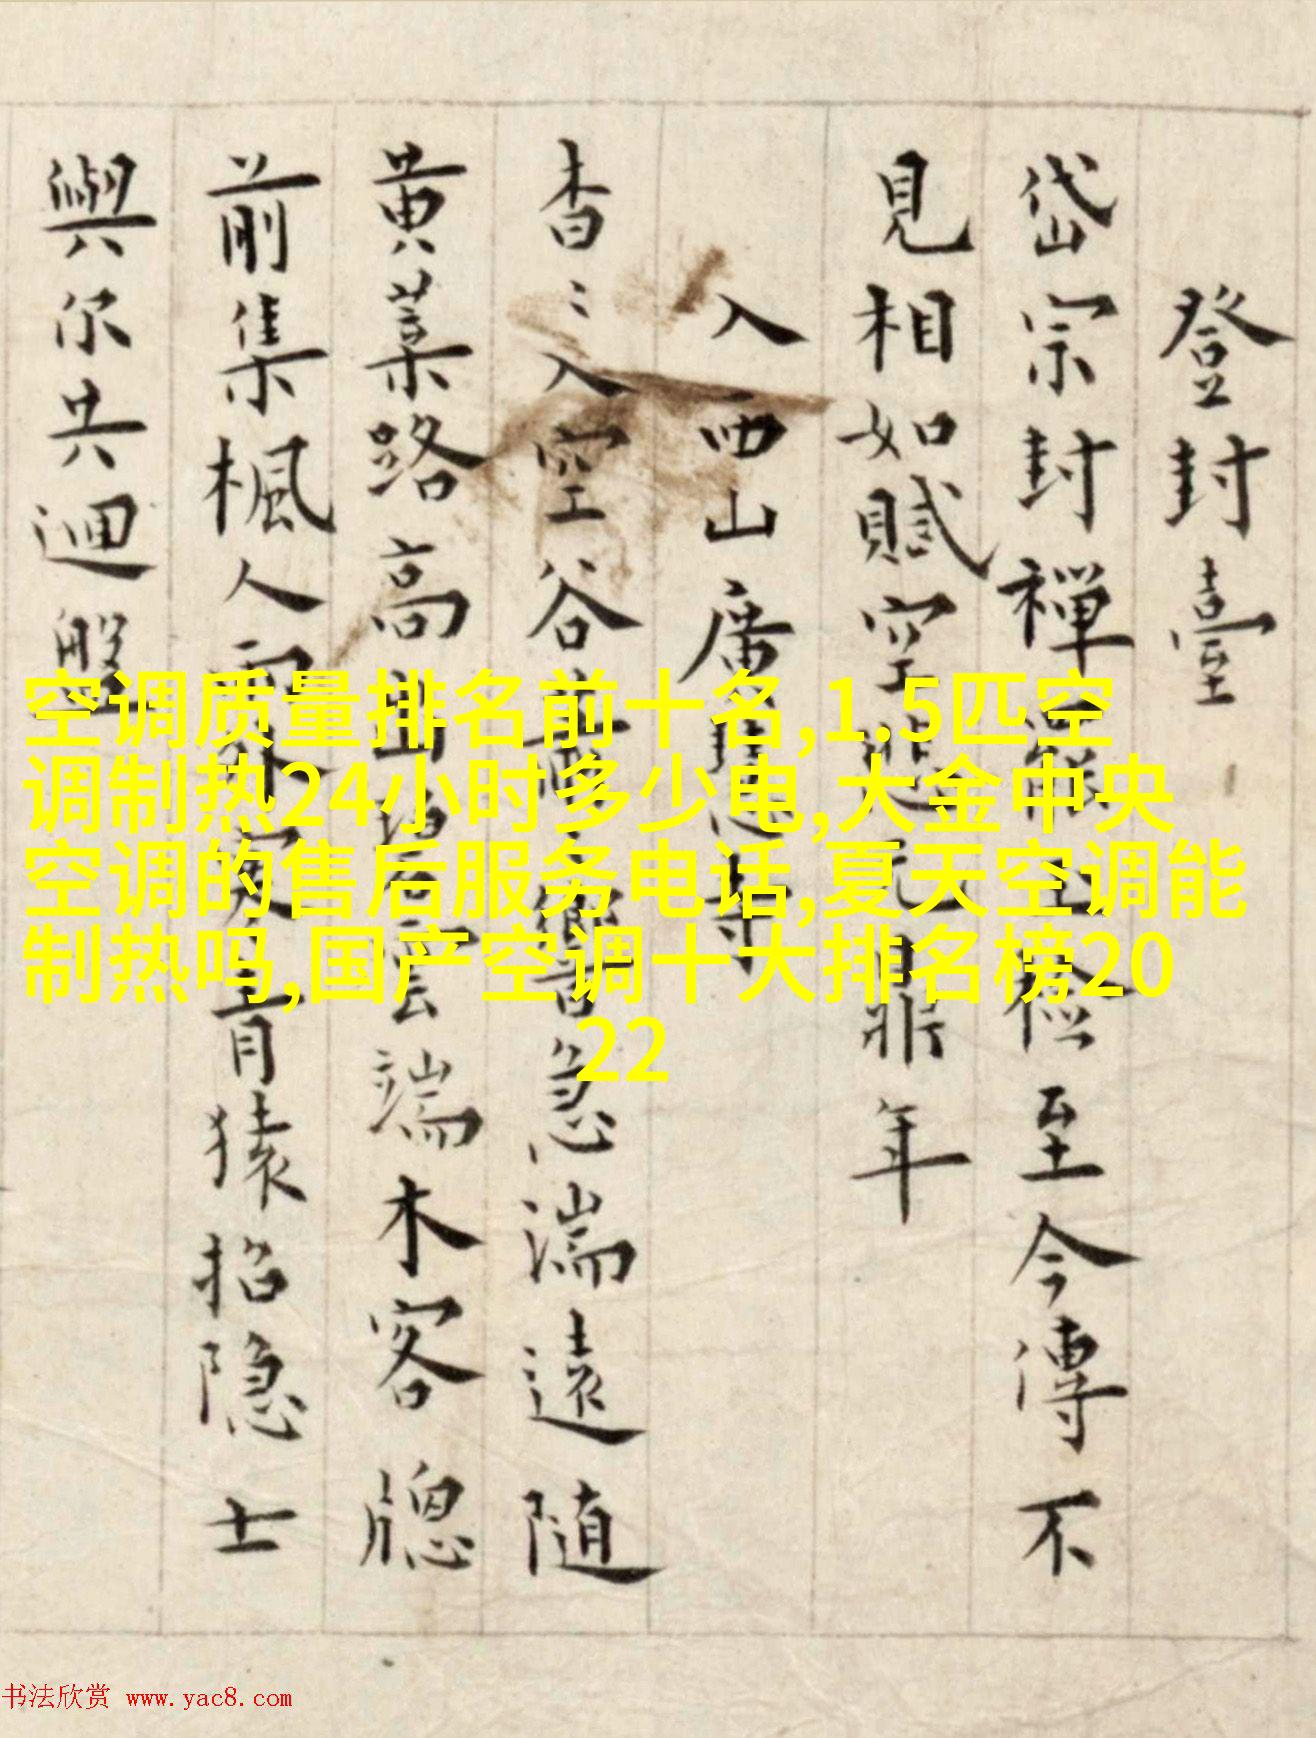 登封臺
岱宗封禪檢至今傳不
見相如賦空悲元鼎年
入西山廣惠寺
杳〻入空谷響急湍遠隨
黃葉路高出碧雲端木客牕
前集楓人外青猿招隐士
與尔共迴盤
空调质量排名前十名,1.5匹空
调制热24小时多少电,大金中央
空调的售后服务电话,夏天空调能
制热吗,国产空调十大排名榜20
22
书法欣赏 www.yac8.com